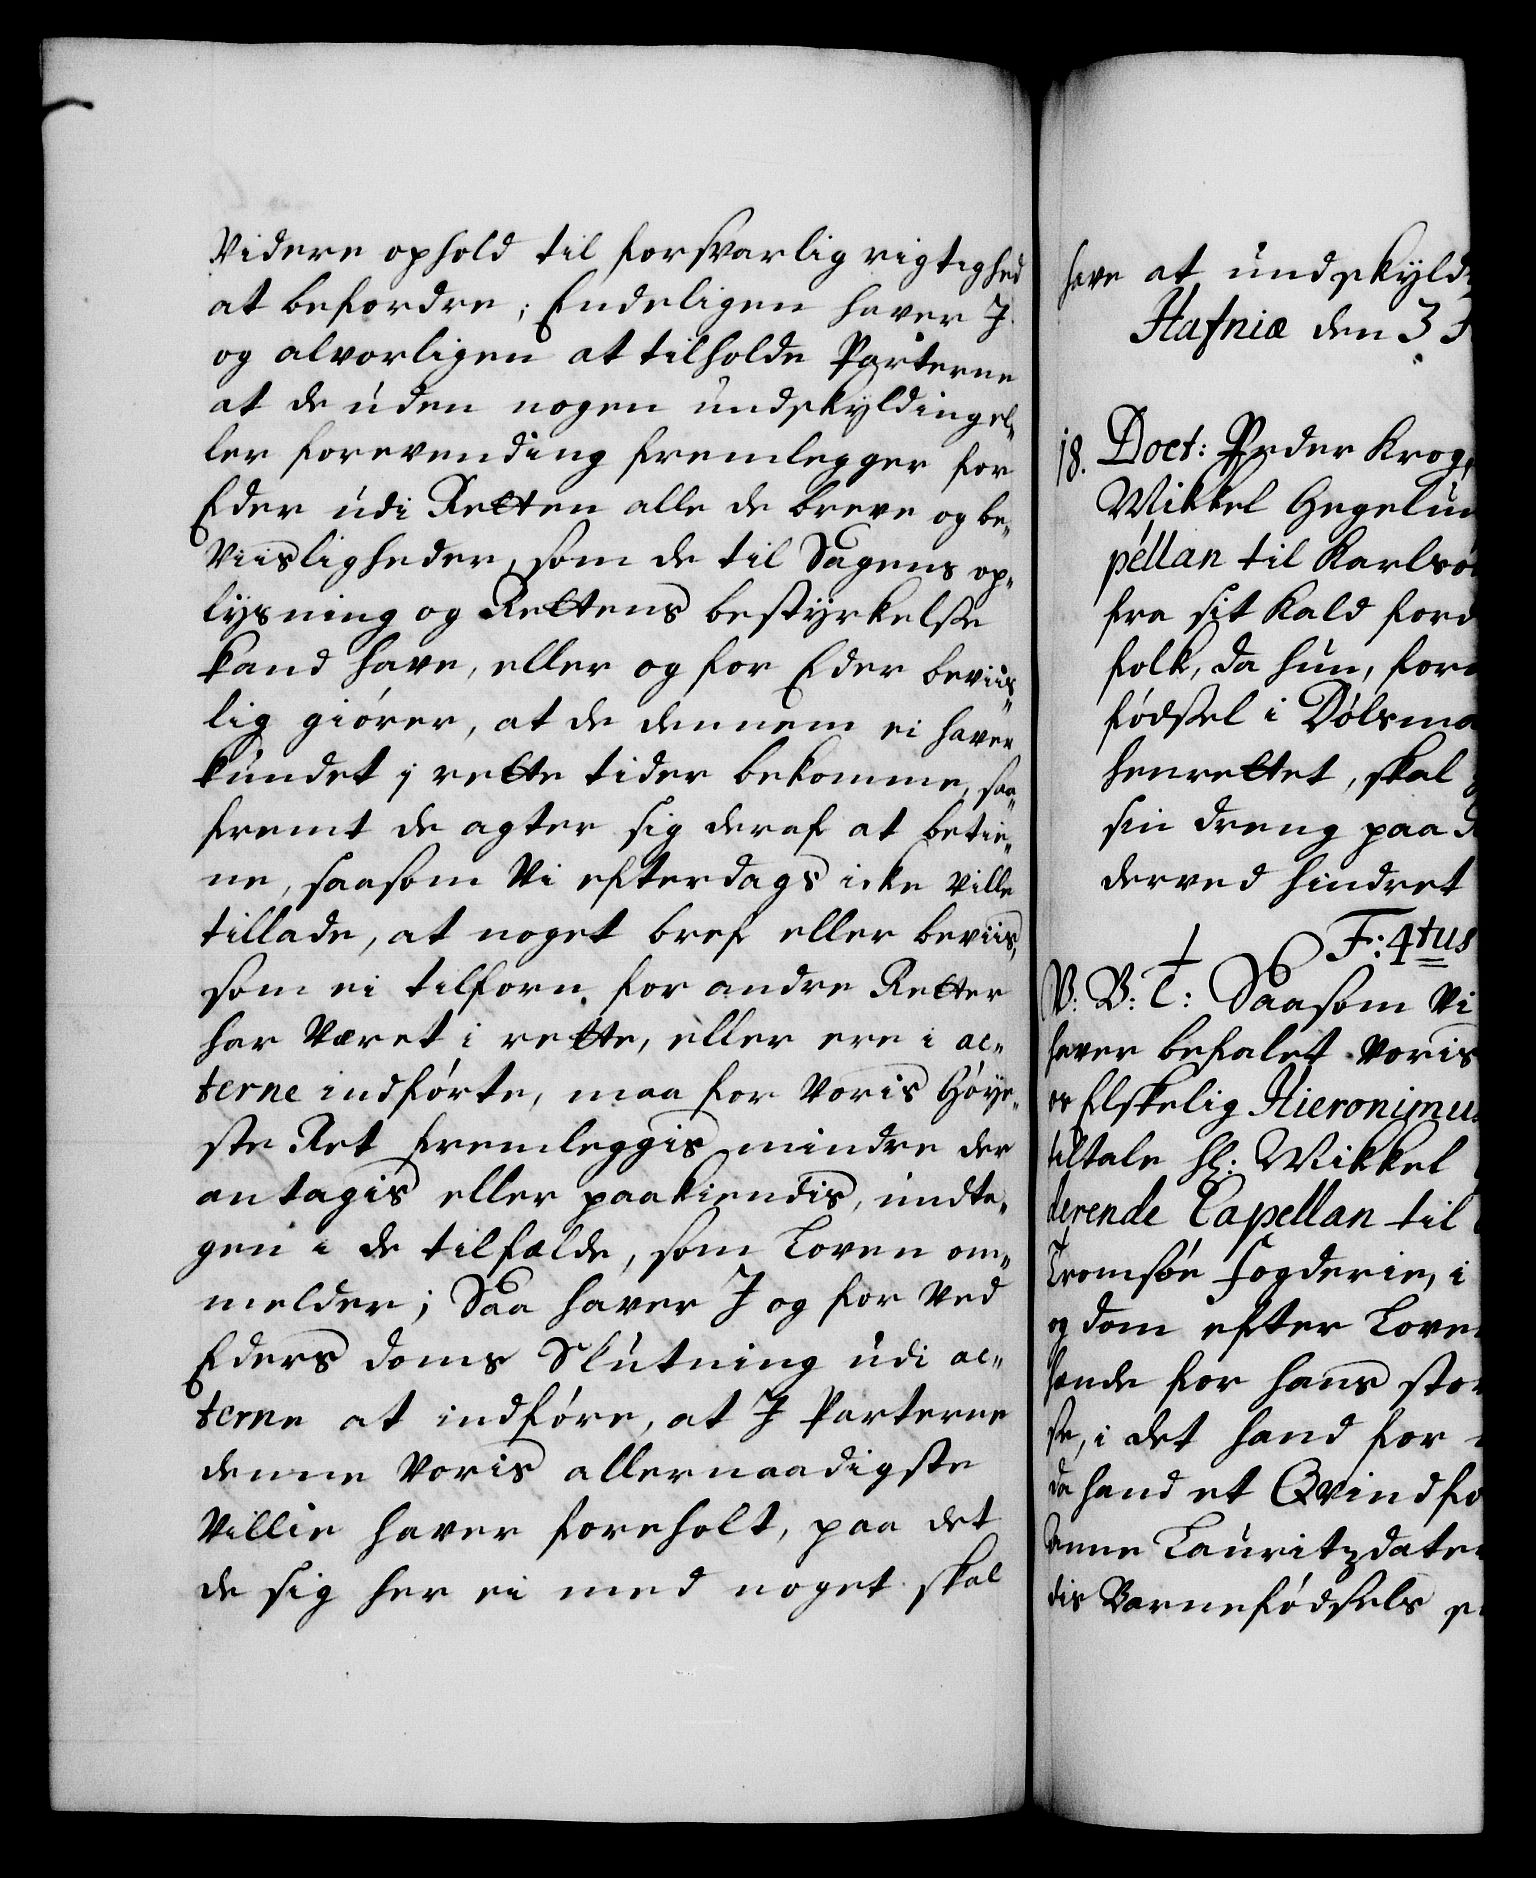 Videre ophold til forsvarlig rigtighed
at befordre; Endeligen haver J
og alvorligen at tilholde Parterne
at de uden nogen undskylding el„
ler forevending fremlegger for
Eder udi Retten alle de breve og be„
viisligheder, som de til Sagens op„
lysning og Rettens bestyrkelse
kand have, eller og for Eder beviis„
lig giører, at de dennem ei haver
kundet j rette tider bekomme, saa„
fremt de agter sig deraf at betie„
ne, saasom Vi efterdags icke ville
tillade, at noget bref eller beviis,
som ei tilforn for andre Retter
har været i rette, eller ere i ac„
terne indførte, maa for Voris Høye„
ste Ret fremleggis mindre der
antagis eller paakiendis, undta„
gen i de tilfælde, som Loven om„
melder; Saa haver J og for ved
Eders doms Slutning udi ac„
terne at indføre, at J Parterne
denne Voris allernaadigste
Villie haver foreholt, paa det
de sig her ei med noget skal
have at undskyld
Hafniæ den 3
18. Doct: Peder Krog,
Mikkel Hegelun
pellan til Karlsø
fra sit Kald ford
folk, da hun, for
fødsel i Dølsma
henrettet, skal
sin dreng paa
derved hindret
F: 4tus
V: B: T: Saasom Vi
haver befalet Voris
os Elskelig Hieronimus
tiltale Hr: Mikkel
derende Capellan til
Tromsøe fogderie, i
og dom efter Loven
hende for hans stor
se, i det hand for
da hand et Qvindfo
Anne Lauritzdater
dis Barnefødsels